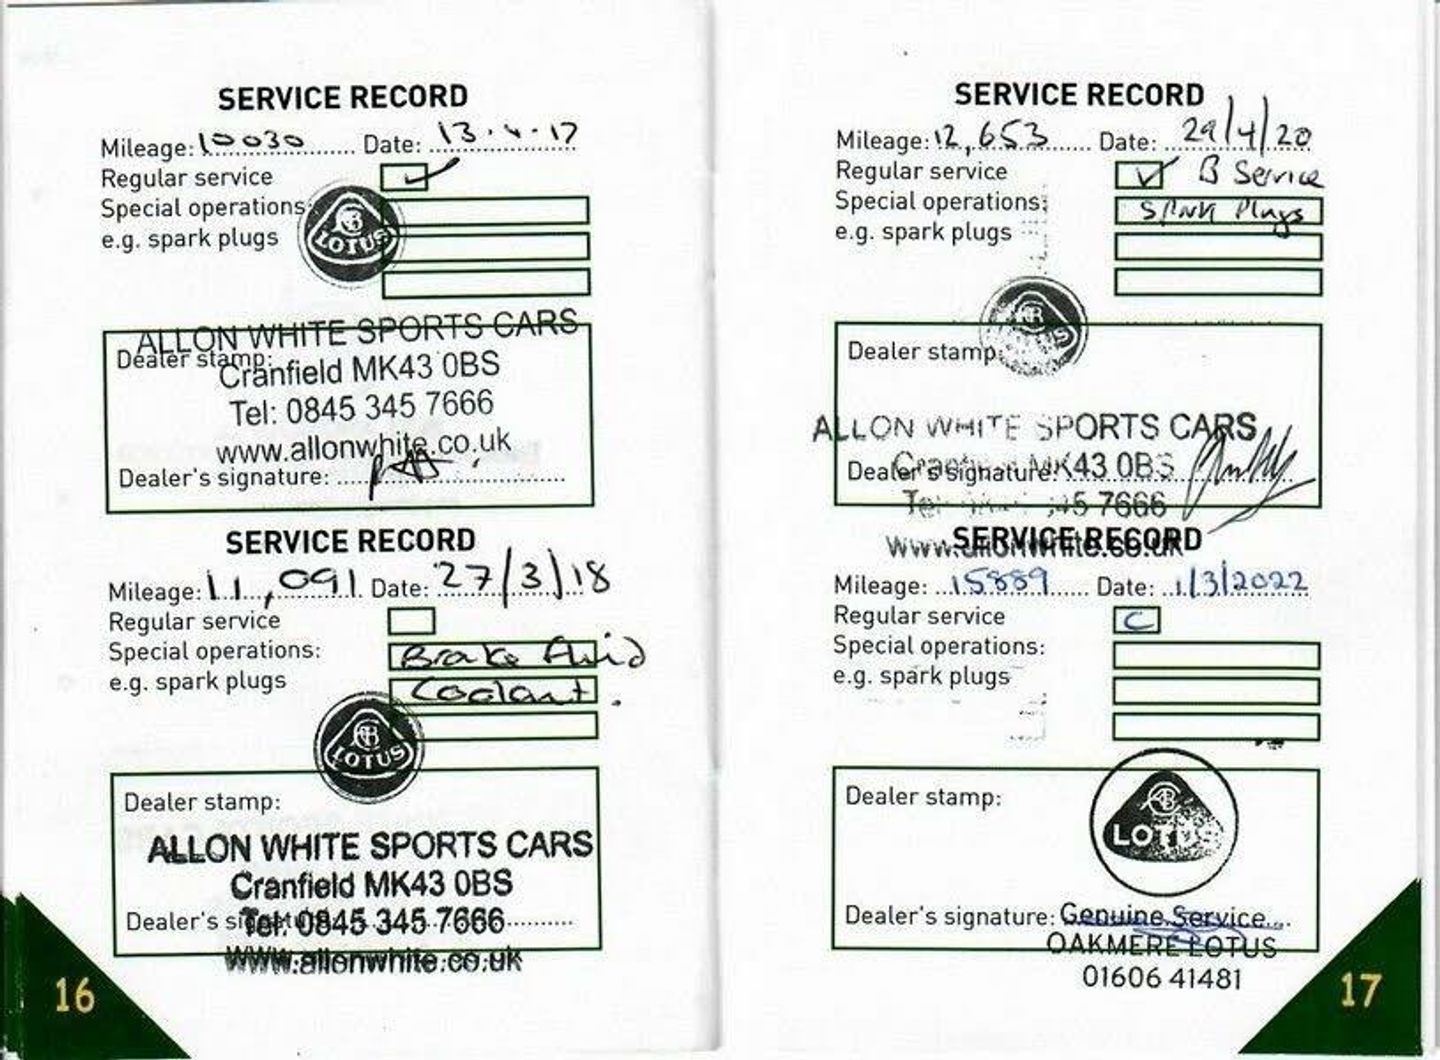 SERVICE RECORD
Mileage: 10030 Date: 13.4.17
Regular service ✓
Special operations
e.g. spark plugs
LOTUS
ALLON WHITE SPORTS CARS
Dealer stamp:
Cranfield MK43 0BS
Tel: 0845 345 7666
www.allonwhite.co.uk
Dealer's signature:
SERVICE RECORD
Mileage: 11,091 Date: 27/3/18
Regular service
Special operations: Brake fluid
e.g. spark plugs Coolant.
LOTUS
Dealer stamp:
ALLON WHITE SPORTS CARS
Cranfield MK43 0BS
Dealer's signature:
Tel: 0845 345 7666
www.allonwhite.co.uk
16
SERVICE RECORD
Mileage: 12,653 Date: 29/4/20
Regular service ✓ B Service
Special operations: Spark Plugs
e.g. spark plugs
Dealer stamp:
ALLON WHITE SPORTS CARS
Cranfield MK43 0BS
Dealer's signature:
Tel: 345 7666
www.allonwhite.co.uk
SERVICE RECORD
Mileage: 15889 Date: 1/3/2022
Regular service C
Special operations:
e.g. spark plugs
Dealer stamp:
LOTUS
Dealer's signature: Genuine Service
OAKMERE LOTUS
01606 41481
17